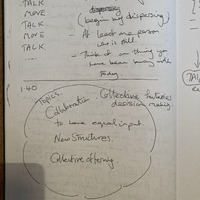 TALK
MOVE
TALK
MOVE
TALK
....
(begin by dispersing)
- At least one person who is still.
- Think of an thing you have been busy with today
1:40
Topics.
Collaboration
to have equal input
New Structures.
Collective offering
Collective fantasies
decision making